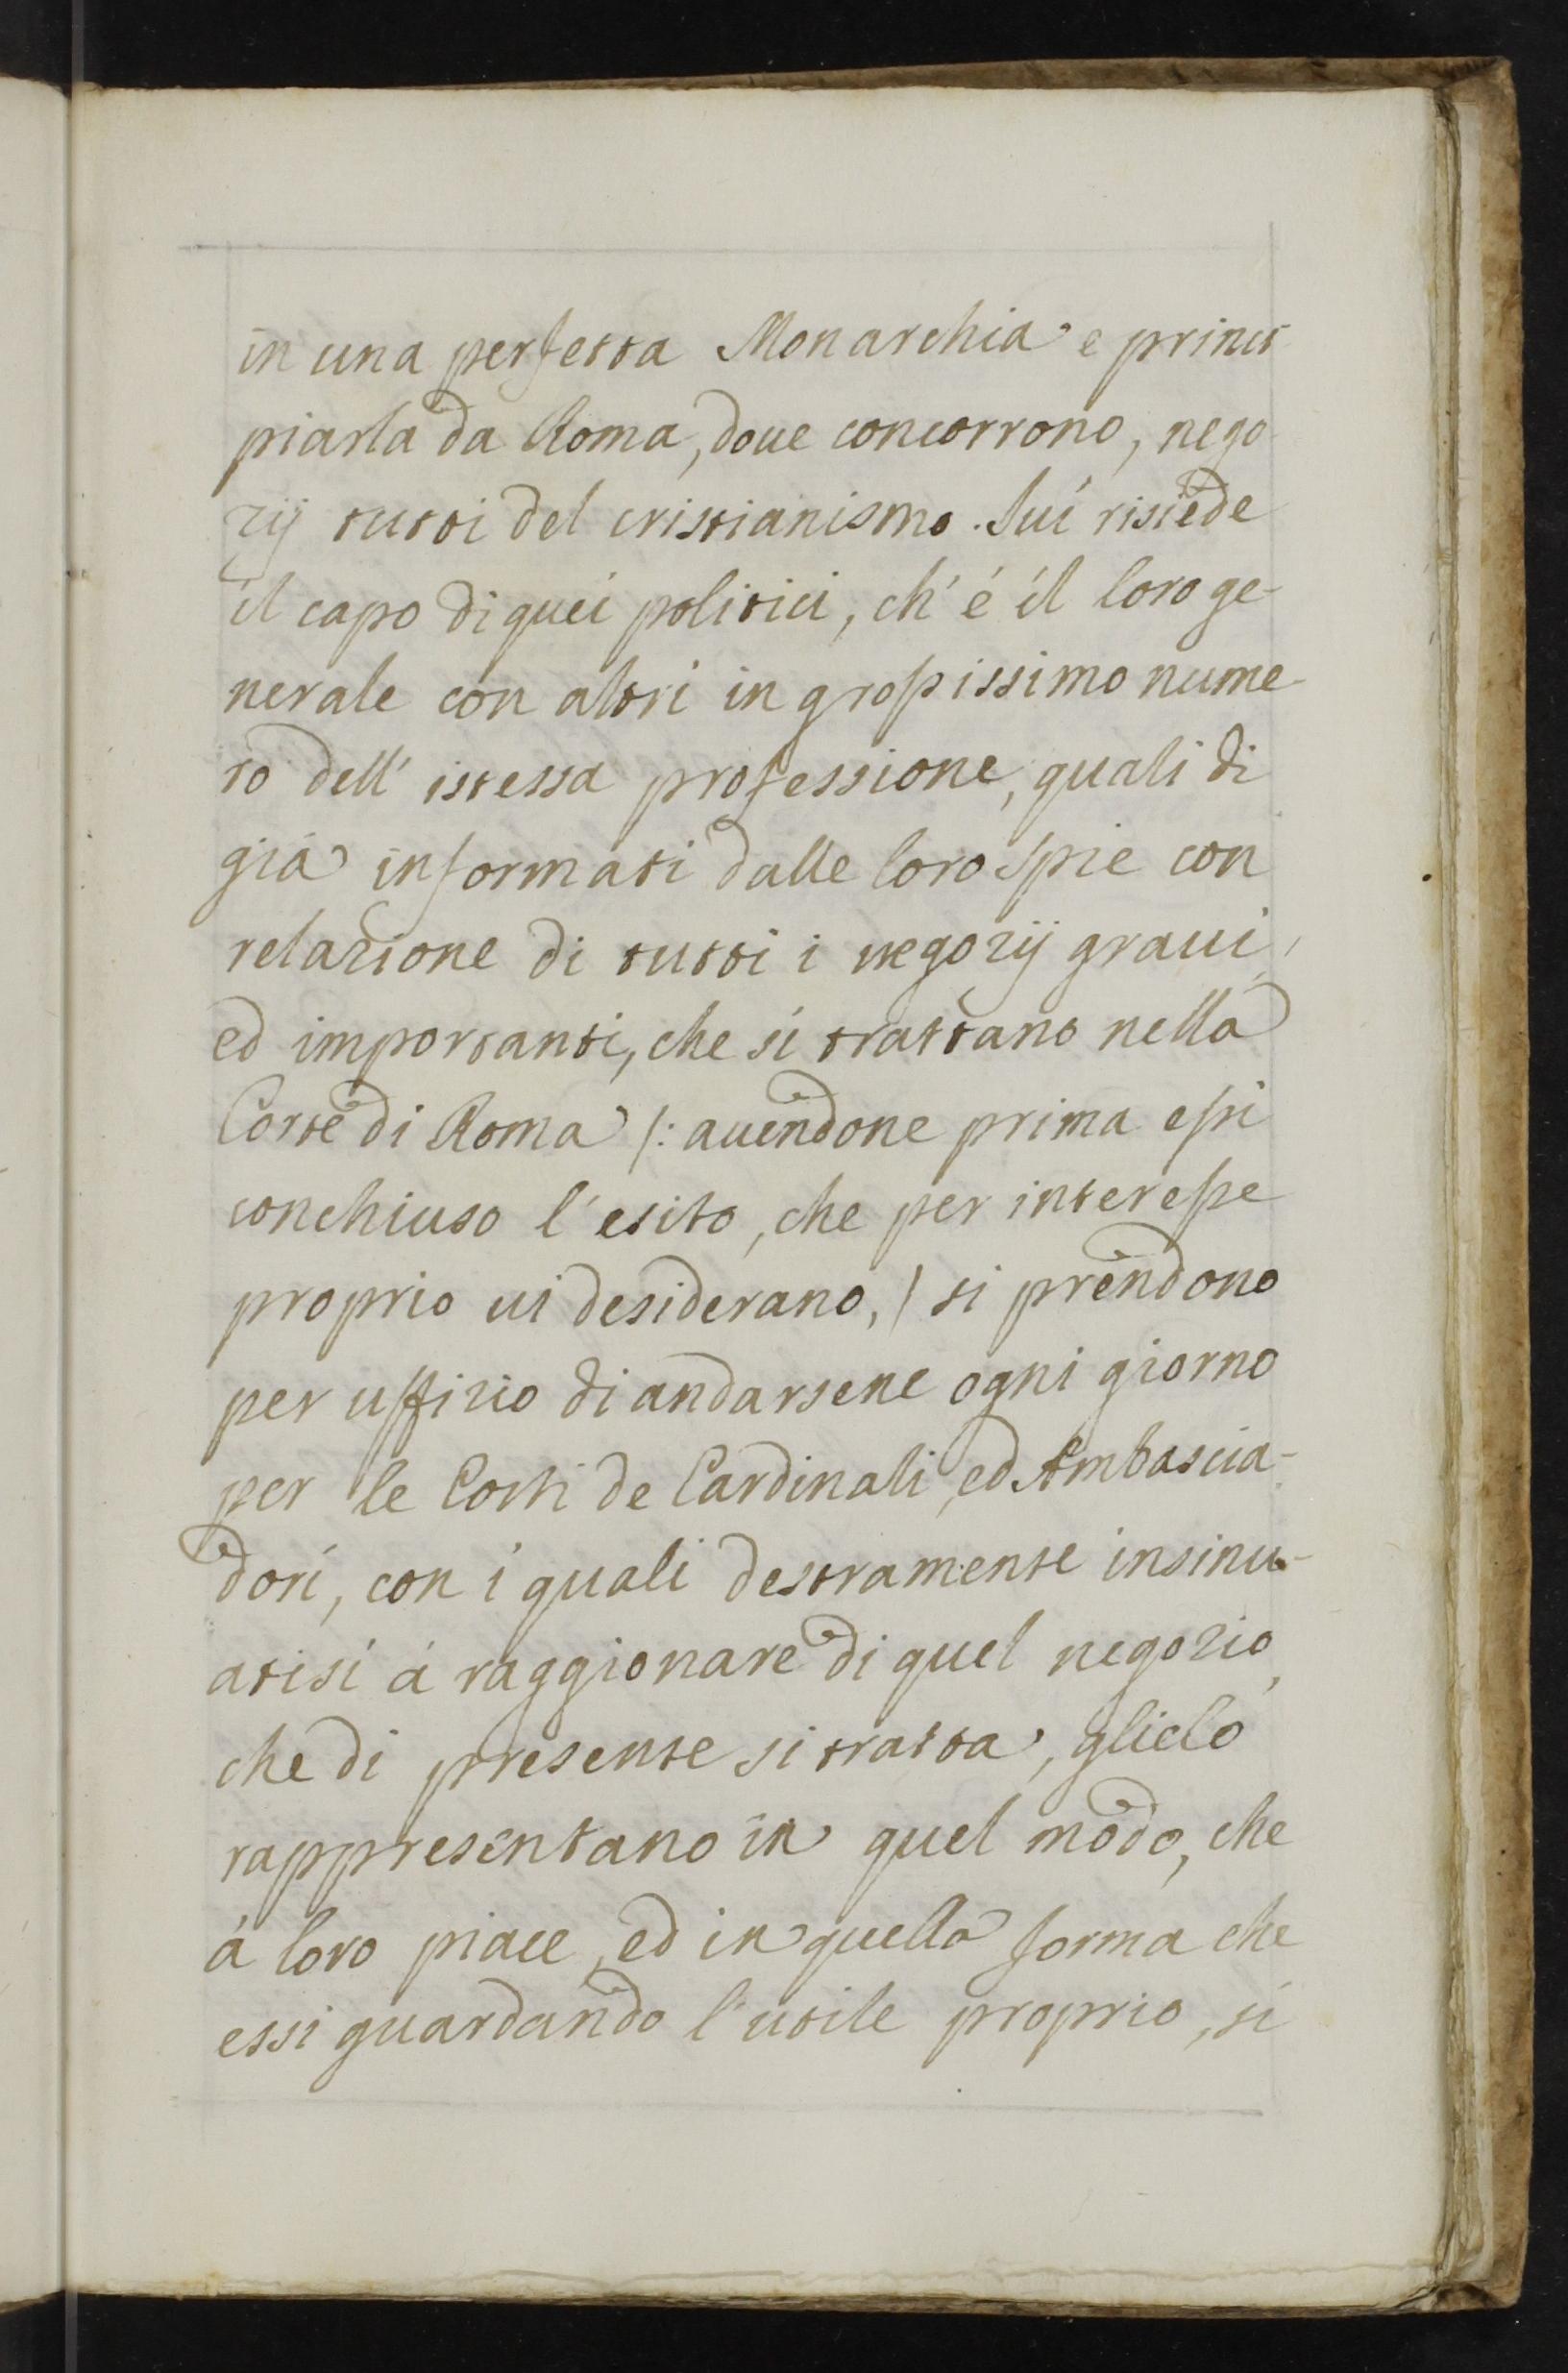 in una perfetta Monarchia e princi-
piarla da Roma, doue concorrono, nego
zij tutti del cristianismo. Iui risiede
il capo di quei politici, ch' é il loro ge-
nerale con altri in grossissimo nume-
ro dell' istessa professione, quali di
già informati dalle loro spie con
relazione di tutti i negozij graui,
ed importanti, che si trattano nella
Corte di Roma /: auendone prima essi
conchiuso l'esito, che per interesse
proprio ui desiderano, / si prendono
per uffizio di andarsene ogni giorno
per le Corti de Cardinali, ed Ambascia-
dori, con i quali destramente insinu-
atisi á raggionare di quel negozio,
che di presente si tratta, glielo
rappresentano in quel modo, che
á loro piace, ed in quella forma che
essi guardando l'utile proprio, si